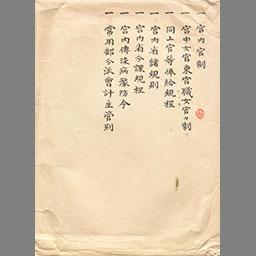 一 宮内官制
一 宮中女官東宮職女官々制
一 同上官等俸給規程
一 宮内省諸規則
一 宮内省分課規程
一 宮内傳染病豫防令
一 常用部分派會計主管別